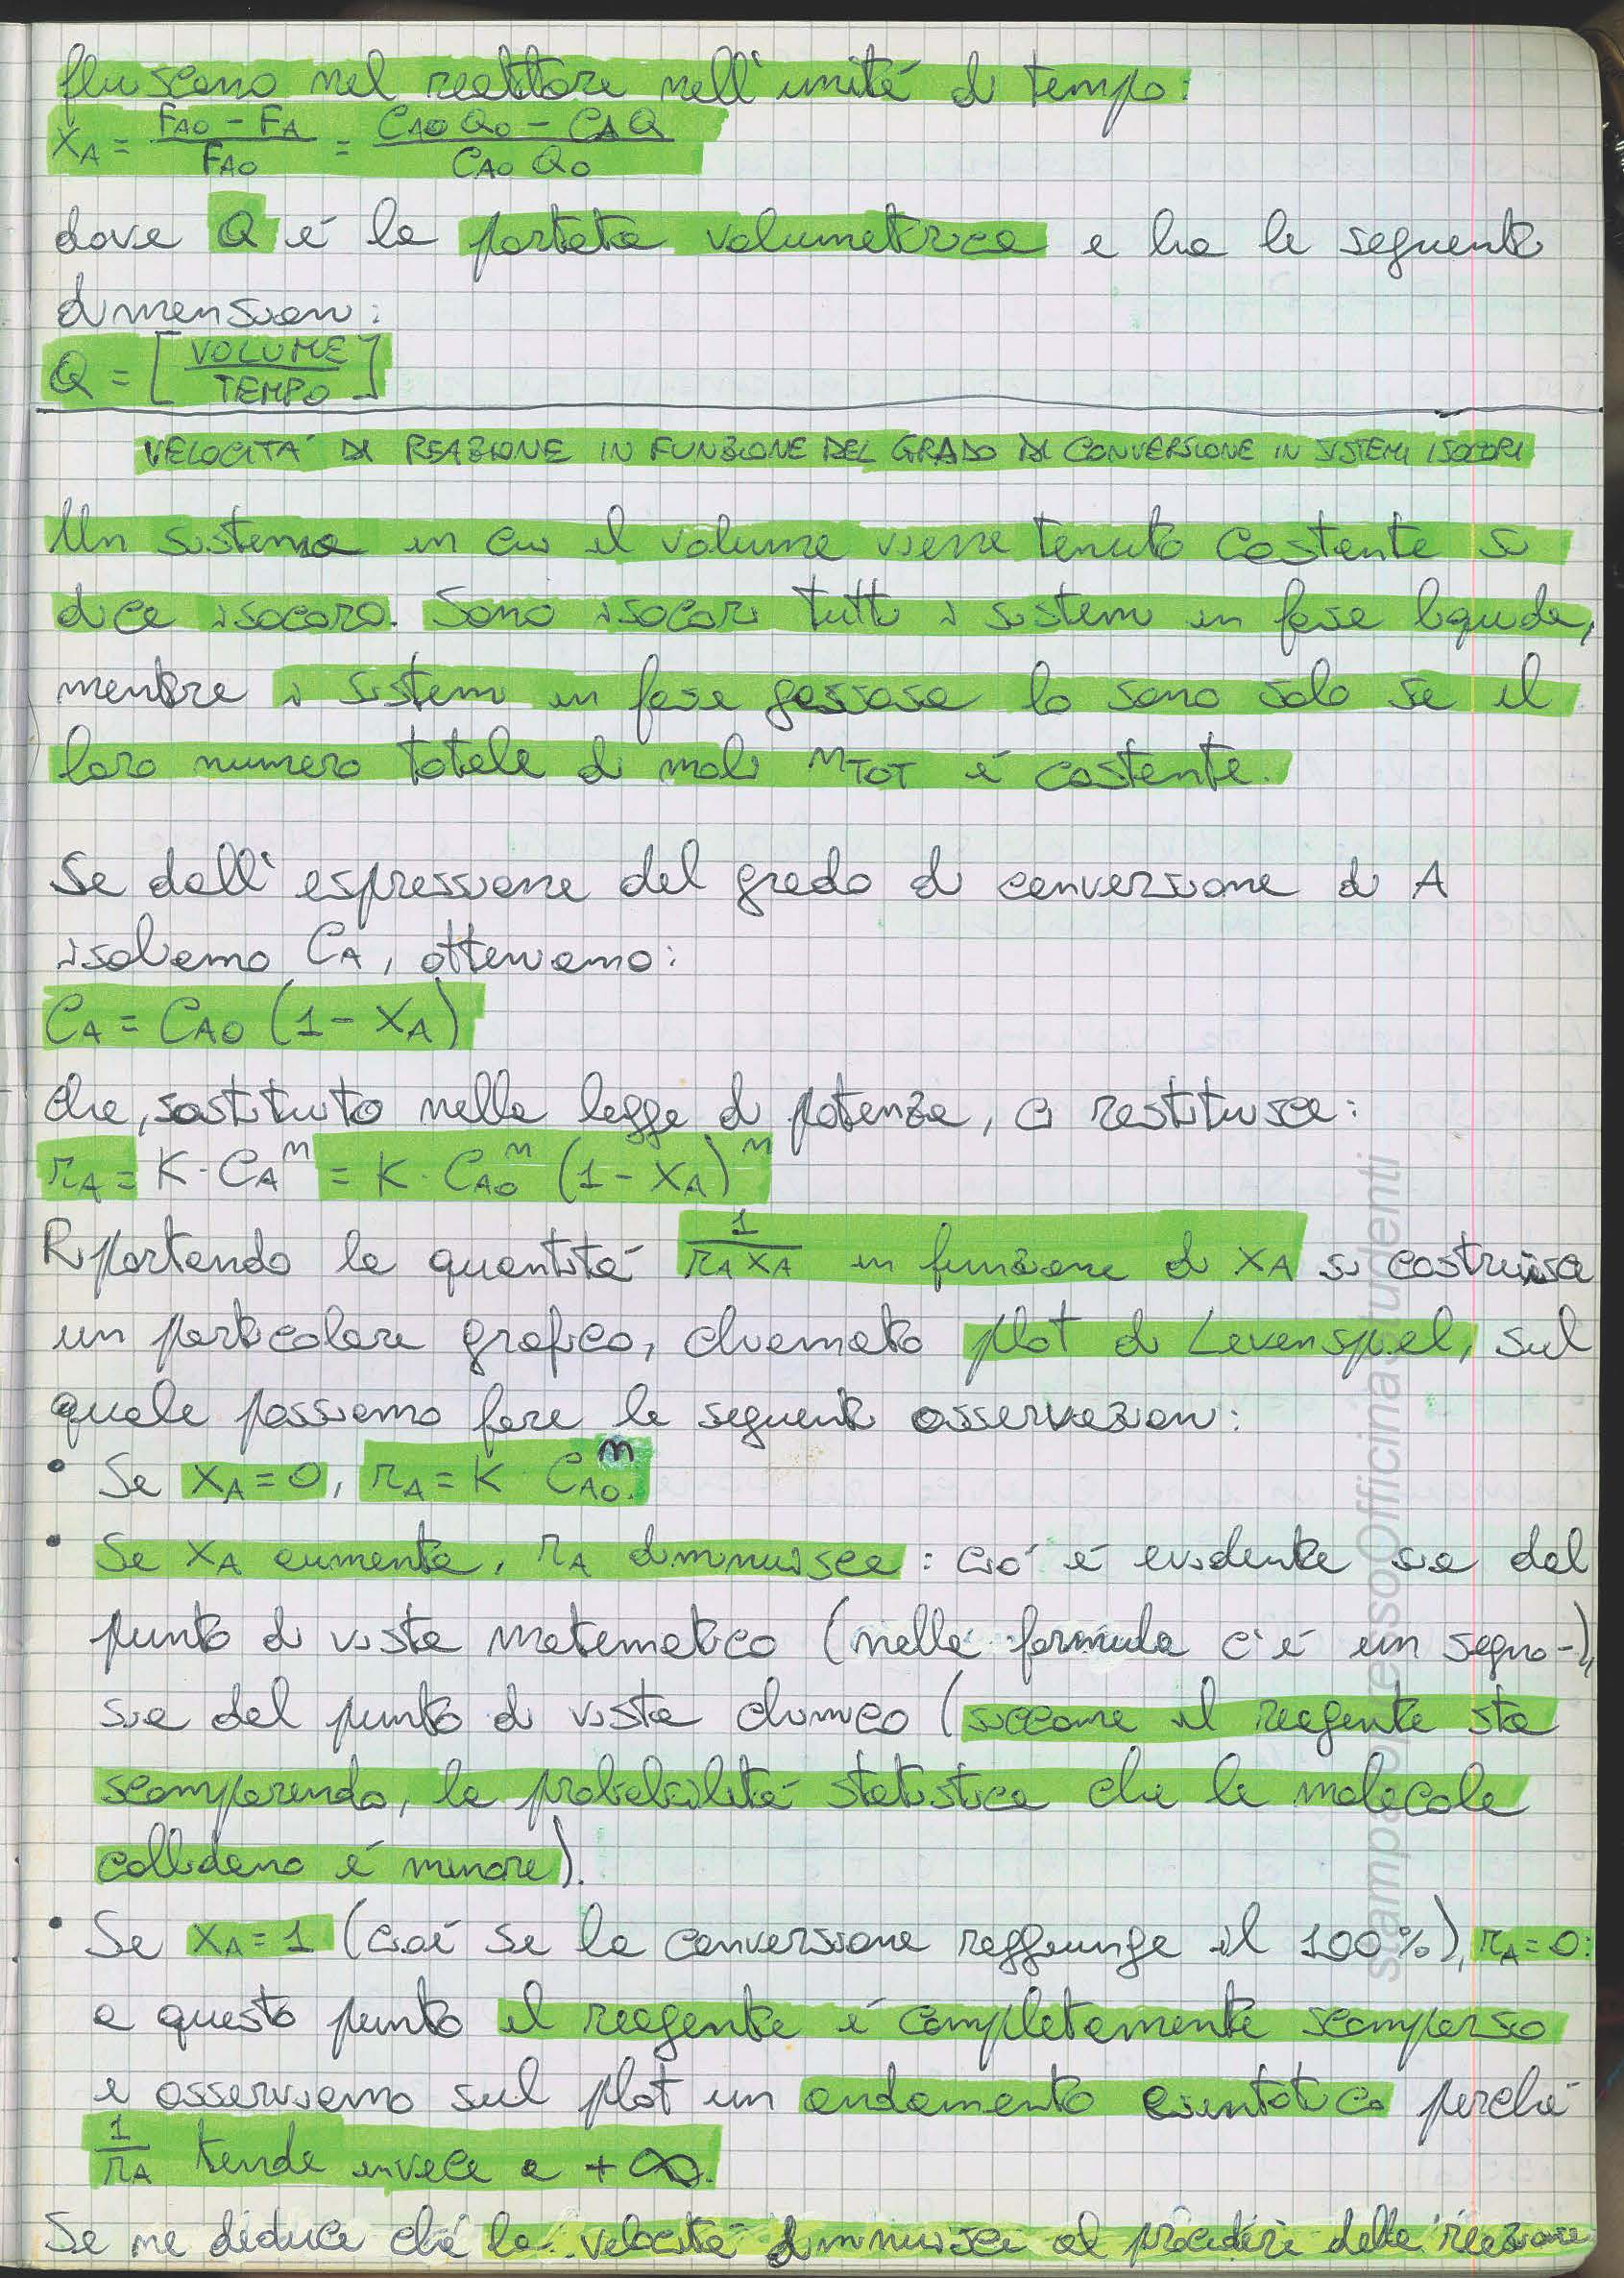 fluiscono nel reattore nell'unità di tempo:
XA = (FA0 - FA) / FA0 = (CA0 Q0 - CA Q) / (CA0 Q0)
dove Q è la portata volumetrica e ha le seguenti
dimensioni:
Q = [VOLUME / TEMPO]
VELOCITÀ DI REAZIONE IN FUNZIONE DEL GRADO DI CONVERSIONE IN SISTEMI ISOCORI
Un sistema in cui il volume viene tenuto costante si
dice isocoro. Sono isocori tutti i sistemi in fase liquida,
mentre i sistemi in fase gassosa lo sono solo se il
loro numero totale di moli nTOT è costante.
Se dall'espressione del grado di conversione di A
isoliamo CA, otteniamo:
CA = CA0 (1 - XA)
che, sostituito nella legge di potenza, ci restituisce:
rA = K · CA^n = K · CA0^n (1 - XA)^n
Riportando la quantità 1 / (rA XA) in funzione di XA si costruisce
un particolare grafico, chiamato plot di Levenspiel, sul
quale possiamo fare le seguenti osservazioni:
• Se XA = 0, rA = K CA0^n.
• Se XA aumenta, rA diminuisce: ciò è evidente sia dal
punto di vista matematico (nella formula c'è un segno -),
sia dal punto di vista chimico (siccome il reagente sta
scomparendo, la probabilità statistica che le molecole
collidano è minore).
• Se XA = 1 (cioè se la conversione raggiunge il 100%), rA = 0:
a questo punto il reagente è completamente scomparso
e osserviamo sul plot un andamento asintotico perché
1 / rA tende invece a +∞.
Se ne deduce che la velocità diminuisce al procedere della reazione
stampato presso Officina Studenti